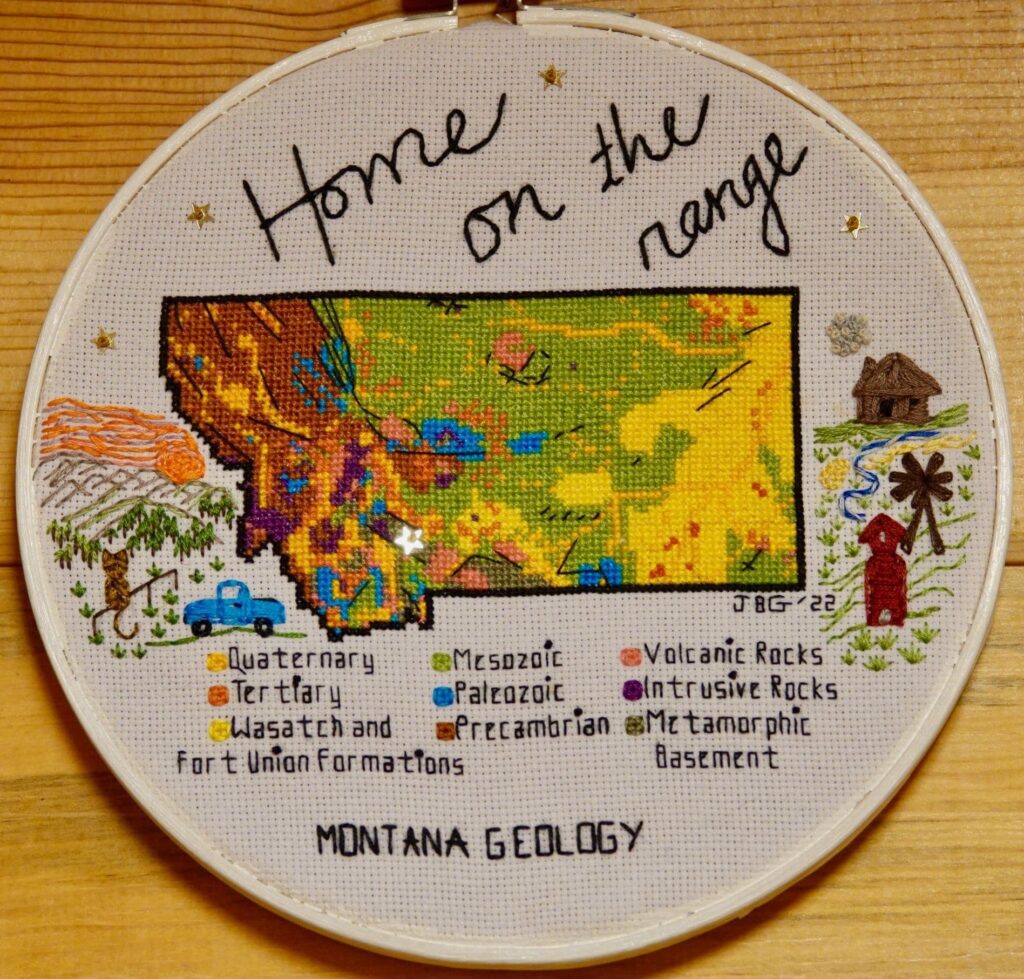 Home on the range
JBG '22
Quaternary Mesozoic Volcanic Rocks
Tertiary Paleozoic Intrusive Rocks
Wasatch and Precambrian Metamorphic
Fort Union Formations Basement
MONTANA GEOLOGY